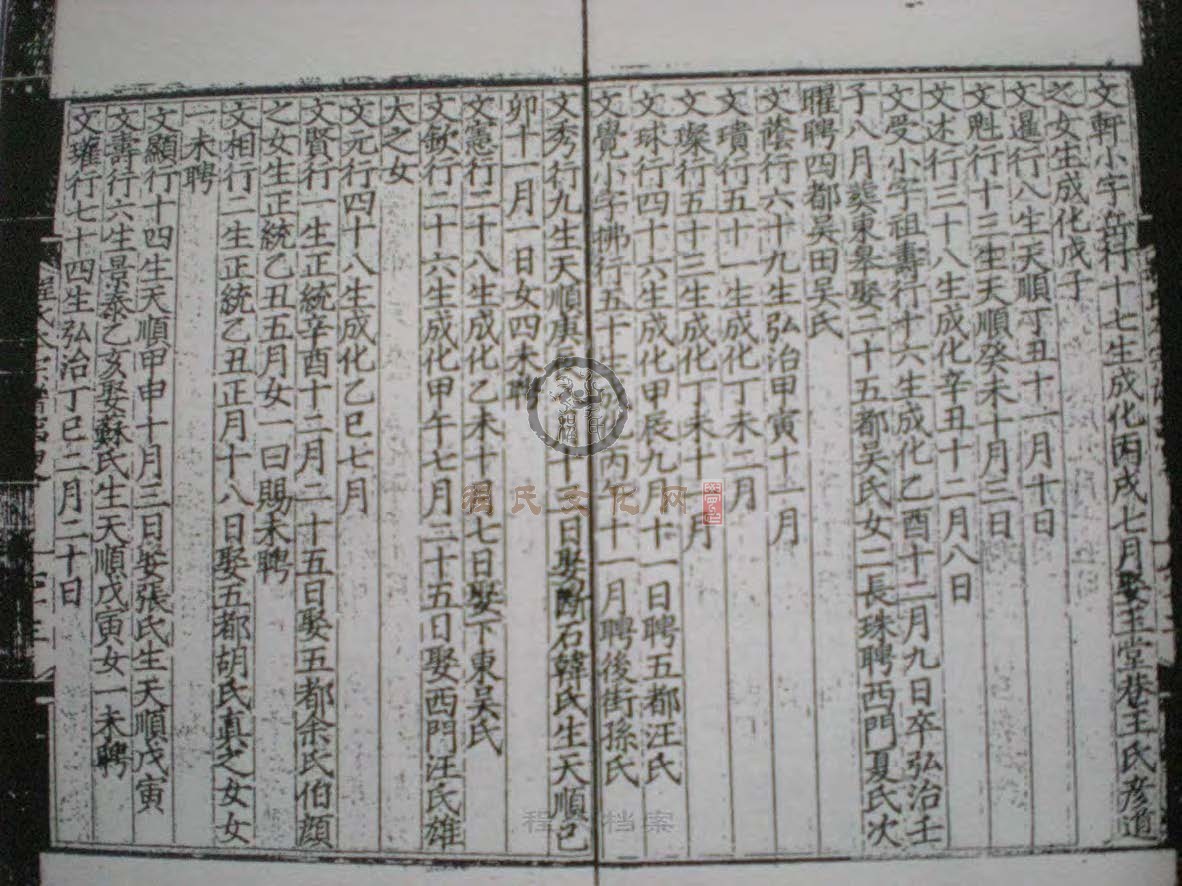 文軒小字 行十七生成化丙戌七月娶王堂巷王氏彦道
之女生成化戊子
文暹行八生天順丁丑十一月十日
文魁行十三生天順癸未十月三日
文述行三十八生成化辛丑十二月八日
文受小字祖壽行十六生成化乙酉十二月九日卒弘治壬
子八月葬東皋娶二十五都吴氏女二長珠聘西門夏氏次
曜聘四都吴田吴氏
文蔭行六十九生弘治甲寅十一月
文璝行五十一生成化丁未二月
文璨行五十三生成化丁未十一月
文球行四十六生成化甲辰九月十一日聘五都汪氏
文覺小字拂行五十生成化丙午十一月聘後街孫氏
文秀行九生天順庚 十二日娶斷石韓氏生天順己
卯十一月一日女四未聘
文憲行二十八生成化乙未十月七日娶下東吴氏
文欽行二十六生成化甲午七月二十五日娶西門汪氏雄
大之女
文元行四十八生成化乙巳七月
文賢行一生正統辛酉十二月二十五日娶五都余氏伯顔
之女生正統乙丑五月女一曰賜未聘
文相行二生正統乙丑正月十八日娶五都胡氏真之女女
一未聘
文顯行十四生天順甲申十月三日娶張氏生天順戊寅
文壽行六生景泰乙亥娶蘇氏生天順戊寅女一未聘
文璀行七十四生弘治丁巳二月二十日
程氏文化网
程氏档案